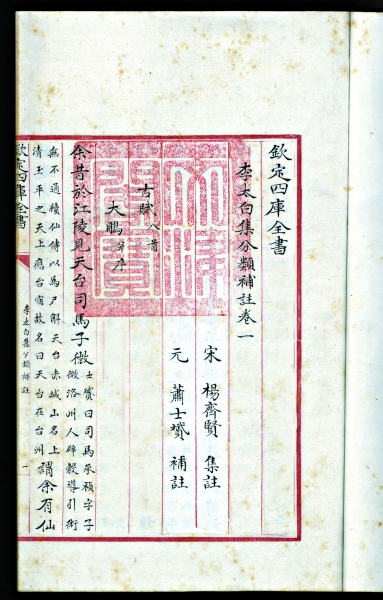 欽定四庫全書
文淵閣寶
李太白集分類補註卷一
宋 楊齊賢 集註
元 蕭士贇 補註
古賦 八首
大鵬 并序
余昔於江陵見天台司馬子微
士贇曰司馬承禎字子
微洛州人辟穀導引術
無不通續仙傳以為尸解天台赤城山名上
清玉平之天上應台宿故名曰天台在台州
謂余有仙
欽定四庫全書
李太白集分類補註
一